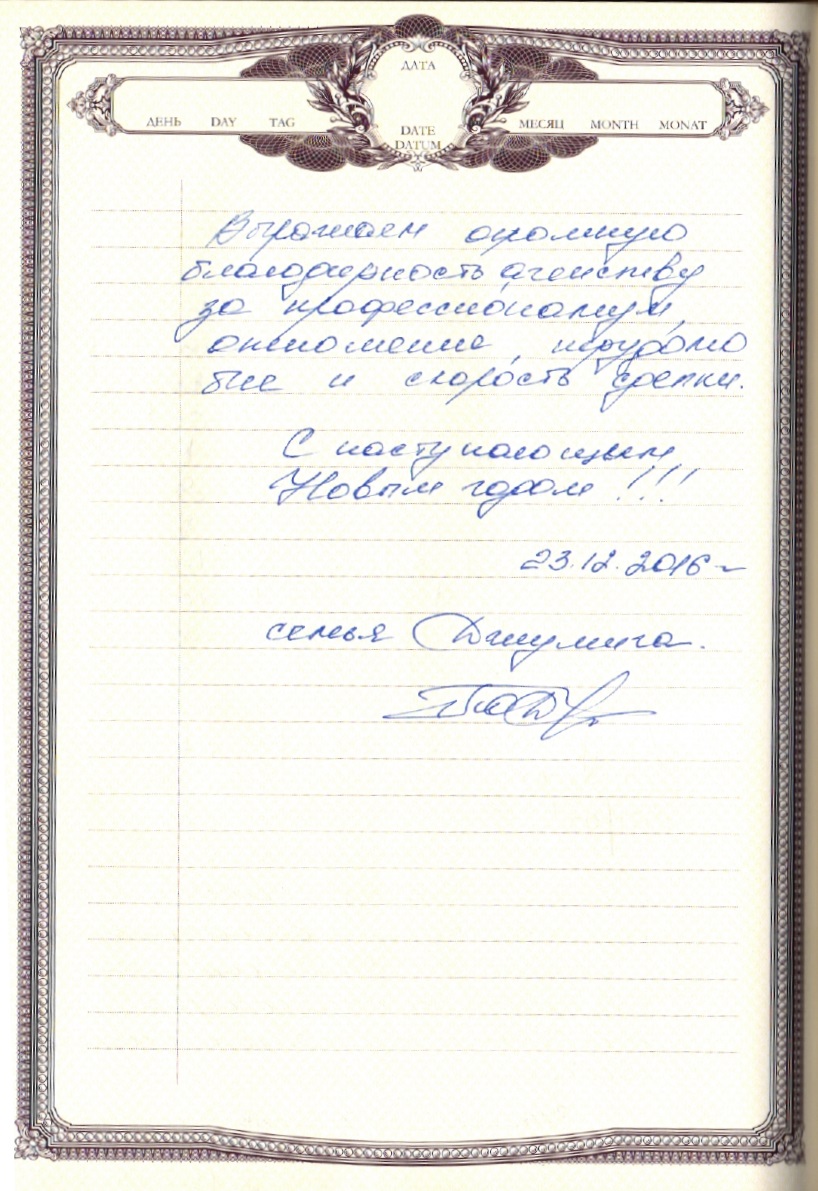 ДАТА
ДЕНЬ DAY TAG DATE МЕСЯЦ MONTH MONAT
DATUM
Выражаем огромную
благодарность агенству
за профессионализм,
отношение, трудолю
бие и скорость сделки.
С наступающим
Новым годом!!!
23.12.2016 г
семья Джумига.